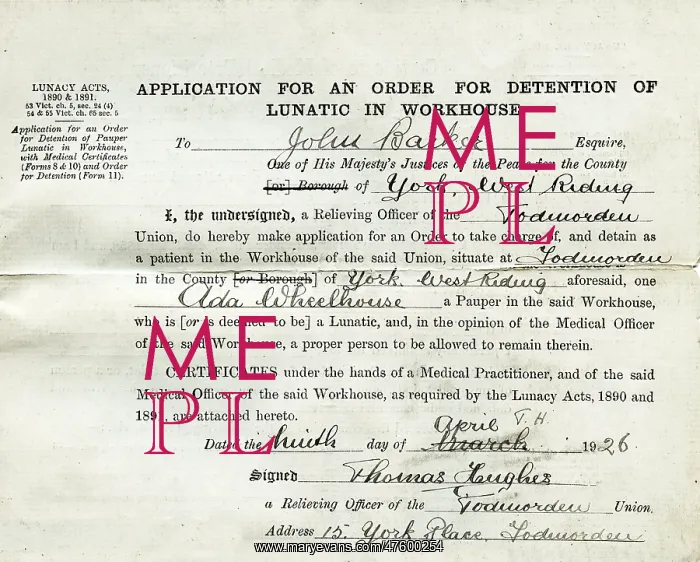 LUNACY ACTS,
1890 & 1891.
53 Vict. ch. 5, sec. 24 (4)
54 & 55 Vict. ch. 65 sec. 5
Application for an Order
for Detention of Pauper
Lunatic in Workhouse,
with Medical Certificates
(Forms 8 & 10) and Order
for Detention (Form 11).
APPLICATION FOR AN ORDER FOR DETENTION OF
LUNATIC IN WORKHOUSE
To John Barker Esquire,
One of His Majesty's Justices of the Peace for the County
[or] Borough of York, West Riding
I, the undersigned, a Relieving Officer of the Todmorden
Union, do hereby make application for an Order to take charge of, and detain as
a patient in the Workhouse of the said Union, situate at Todmorden
in the County [or Borough] of York, West Riding aforesaid, one
Ada Wheelhouse a Pauper in the said Workhouse,
who is [or is deemed to be] a Lunatic, and, in the opinion of the Medical Officer
of the said Workhouse, a proper person to be allowed to remain therein.
CERTIFICATES under the hands of a Medical Practitioner, and of the said
Medical Officer of the said Workhouse, as required by the Lunacy Acts, 1890 and
1891, are attached hereto.
April T. H.
Dated the ninth day of March 1926
Signed Thomas Hughes
a Relieving Officer of the Todmorden Union.
Address 15, York Place, Todmorden
ME
PL
ME
PL
www.maryevans.com/47600254